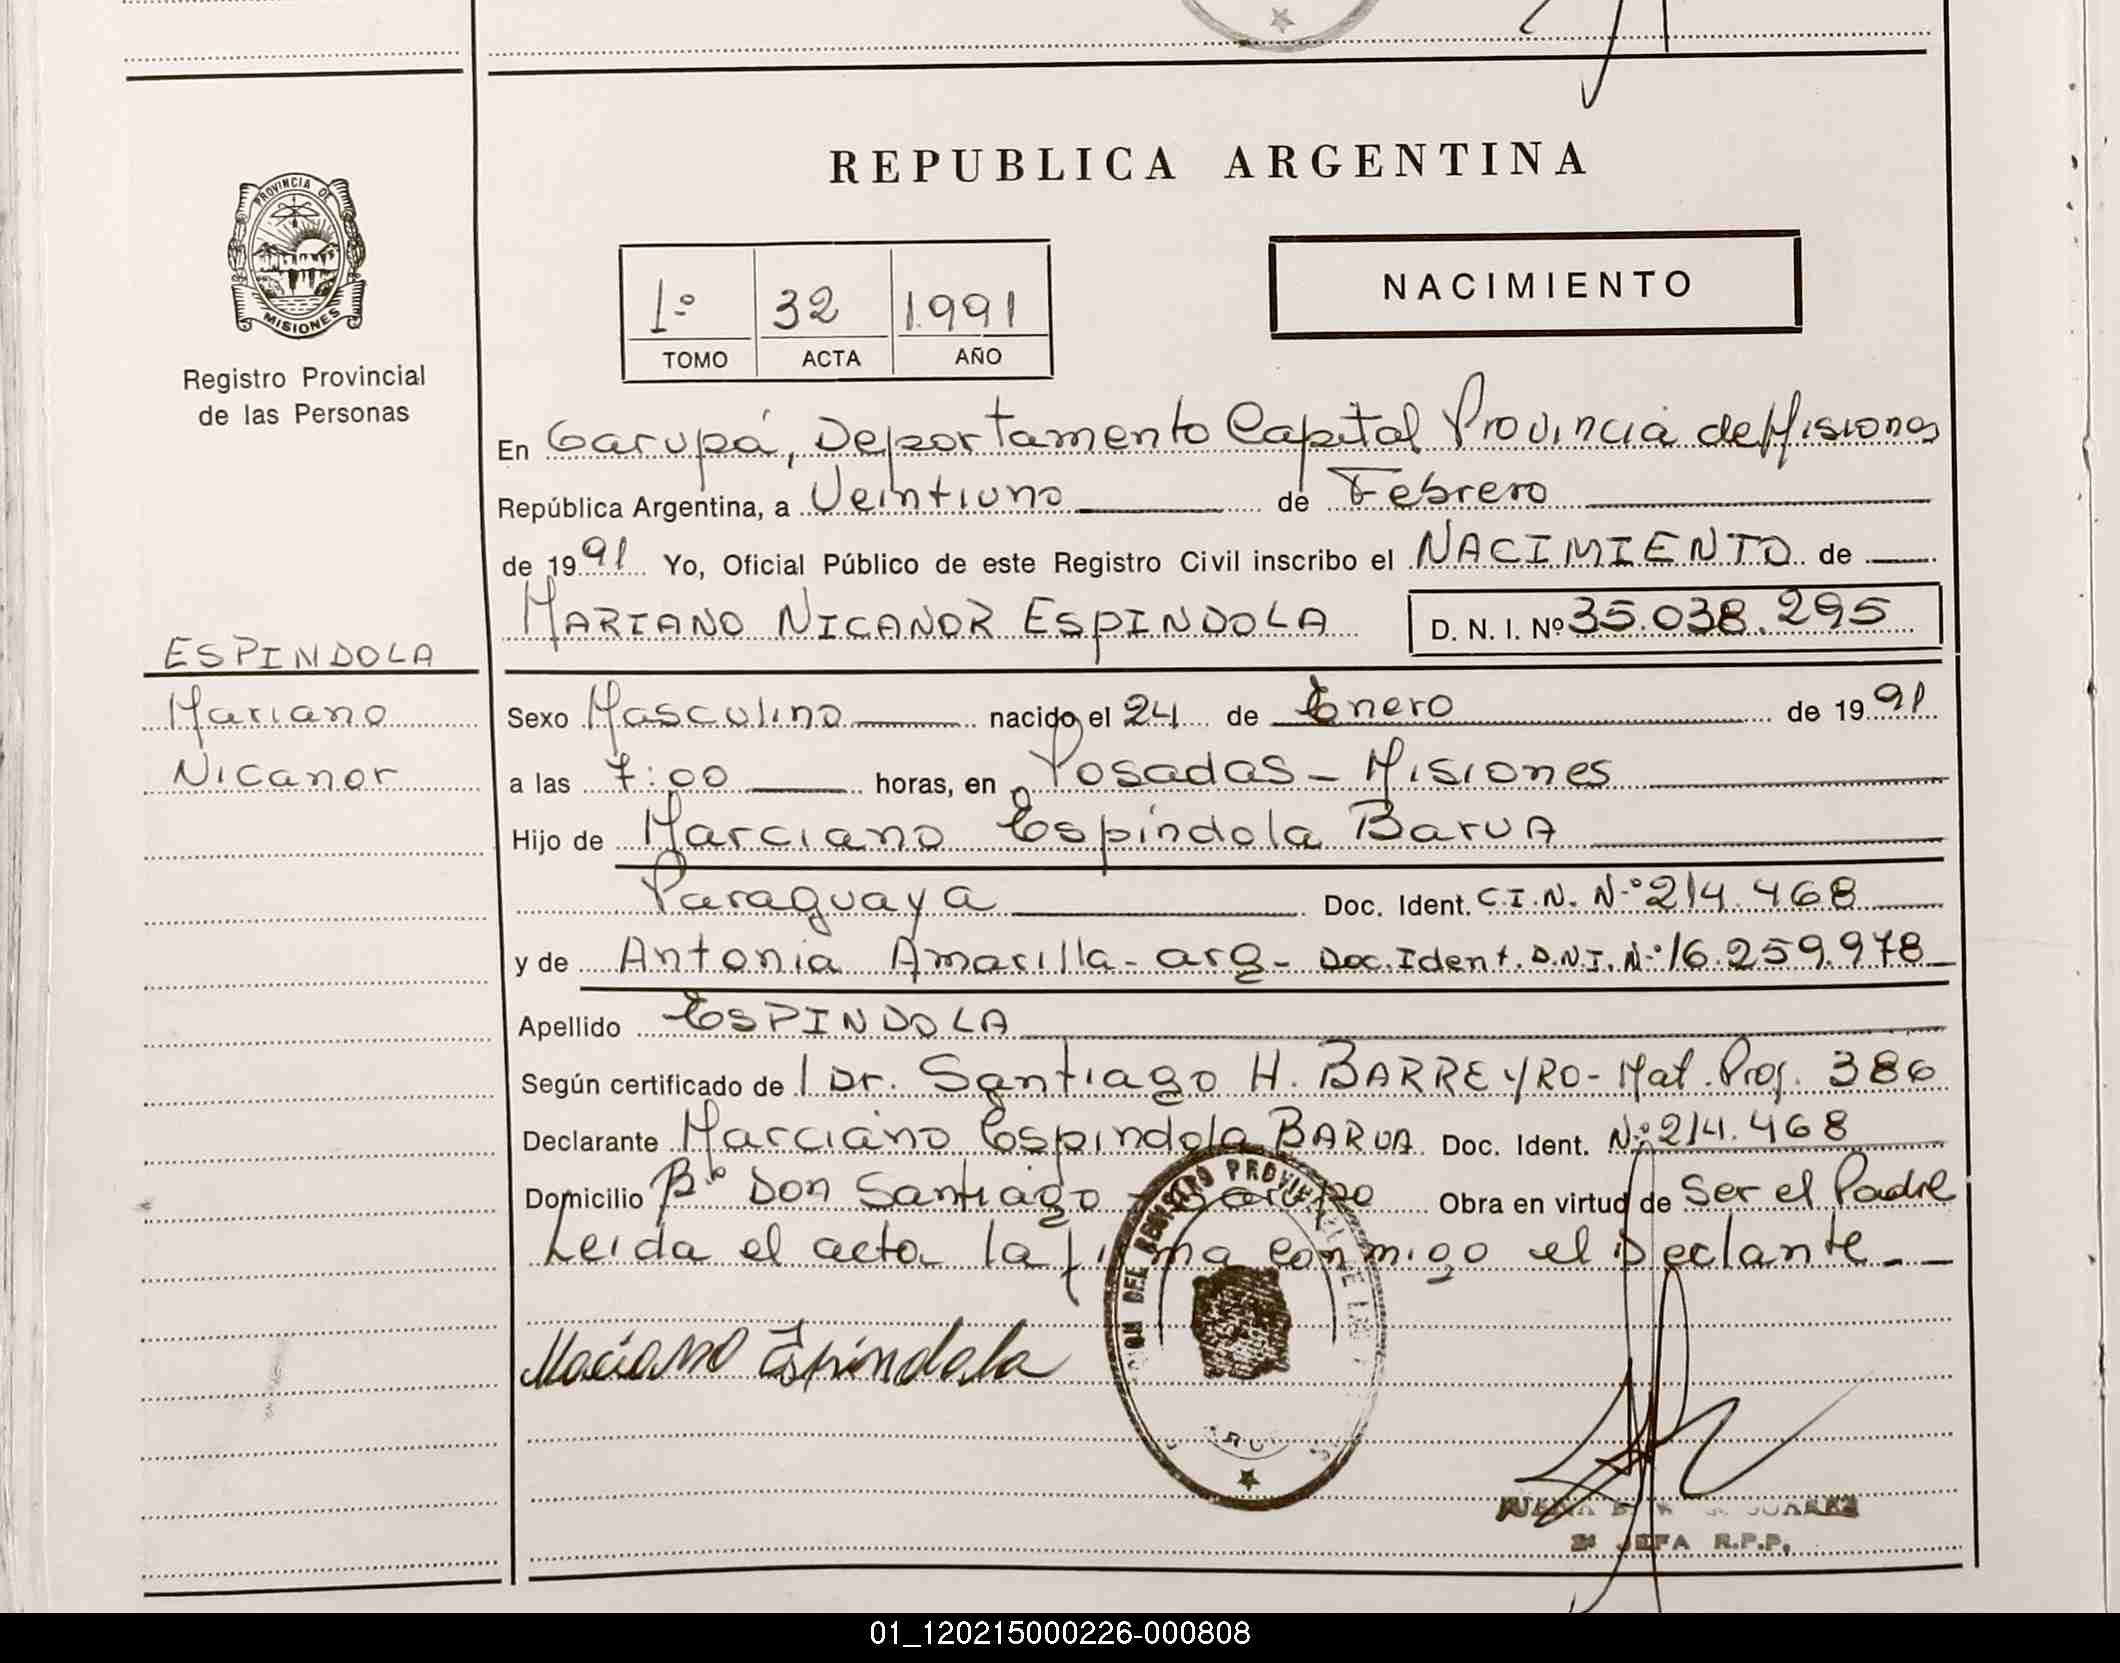 REPUBLICA ARGENTINA
PROVINCIA DE
MISIONES
Registro Provincial
de las Personas
1º 32 1991
TOMO ACTA AÑO
NACIMIENTO
En Garupá, Departamento Capital Provincia de Misiones
República Argentina, a Veintiuno de Febrero
de 1991 Yo, Oficial Público de este Registro Civil inscribo el NACIMIENTO de
MARIANO NICANOR ESPINDOLA D. N. I. Nº 35.038.295
ESPINDOLA
Mariano
Nicanor
Sexo Masculino nacido el 24 de Enero de 1991
a las 7:00 horas, en Posadas - Misiones
Hijo de Marciano Espíndola Barua
Paraguaya Doc. Ident. C.I.N. Nº 214.468
y de Antonia Amarilla - arg - Doc. Ident. D.N.I. Nº 16.259.978
Apellido ESPINDOLA
Según certificado de l Dr. Santiago H. BARREYRO - Mat. Prof. 386
Declarante Marciano Espindola BARUA Doc. Ident. Nº 214.468
Domicilio Bº Don Santiago - Garupa Obra en virtud de Ser el Padre
Leida el acta la firma conmigo el Declante - -
DEL REGISTRO PROVINCIAL DE LAS
Marciano Espíndola
JUAREZ
2ª JEFA R.P.P.
01_120215000226-000808